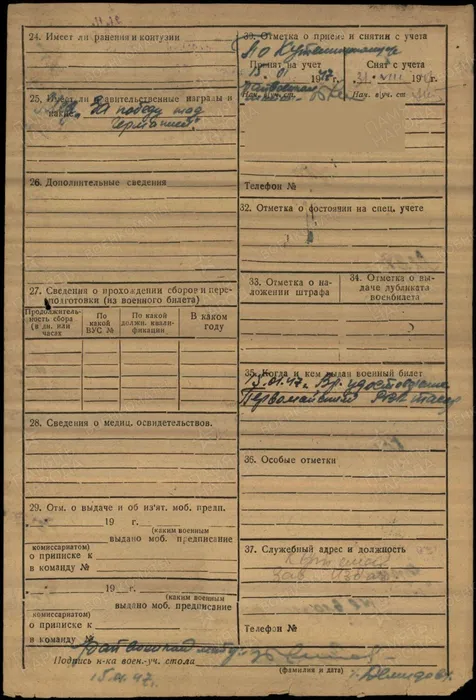 24. Имеет ли ранения и контузии
25. Имеет ли правительственные награды и
какие
"За победу над
Германией".
26. Дополнительные сведения
27. Сведения о прохождении сборов и пере-
подготовки (из военного билета)
Продолжитель-
ность сбора
(в дн. или
часах
По
какой
ВУС №
По какой
должн. квали-
фикации
В каком
году
28. Сведения о медиц. освидетельствов.
29. Отм. о выдаче и об из'ят. моб. предп.
19 г.
(каким военным
выдано моб. предписание
комиссариатом)
о приписке к
в команду №
19 г.
(каким военным
выдано моб. предписание
комиссариатом)
о приписке к
в команду №
Подпись н-ка воен.-уч. стола
(фамилия и дата)
30. Отметка о приеме и снятии с учета
по
Принят на учет
Снят с учета
15 01 1947 г.
31. VIII 194
Нач. в/уч. ст
Нач. в/уч. ст
Телефон №
32. Отметка о состоянии на спец. учете
33. Отметка о на-
ложении штрафа
34. Отметка о вы-
даче дубликата
военбилета
35. Когда и кем выдан военный билет
15.01.47г. Вр. удостоверение
Первомайский РВК
36. Особые отметки
37. Служебный адрес и должность
Зав.
Телефон №